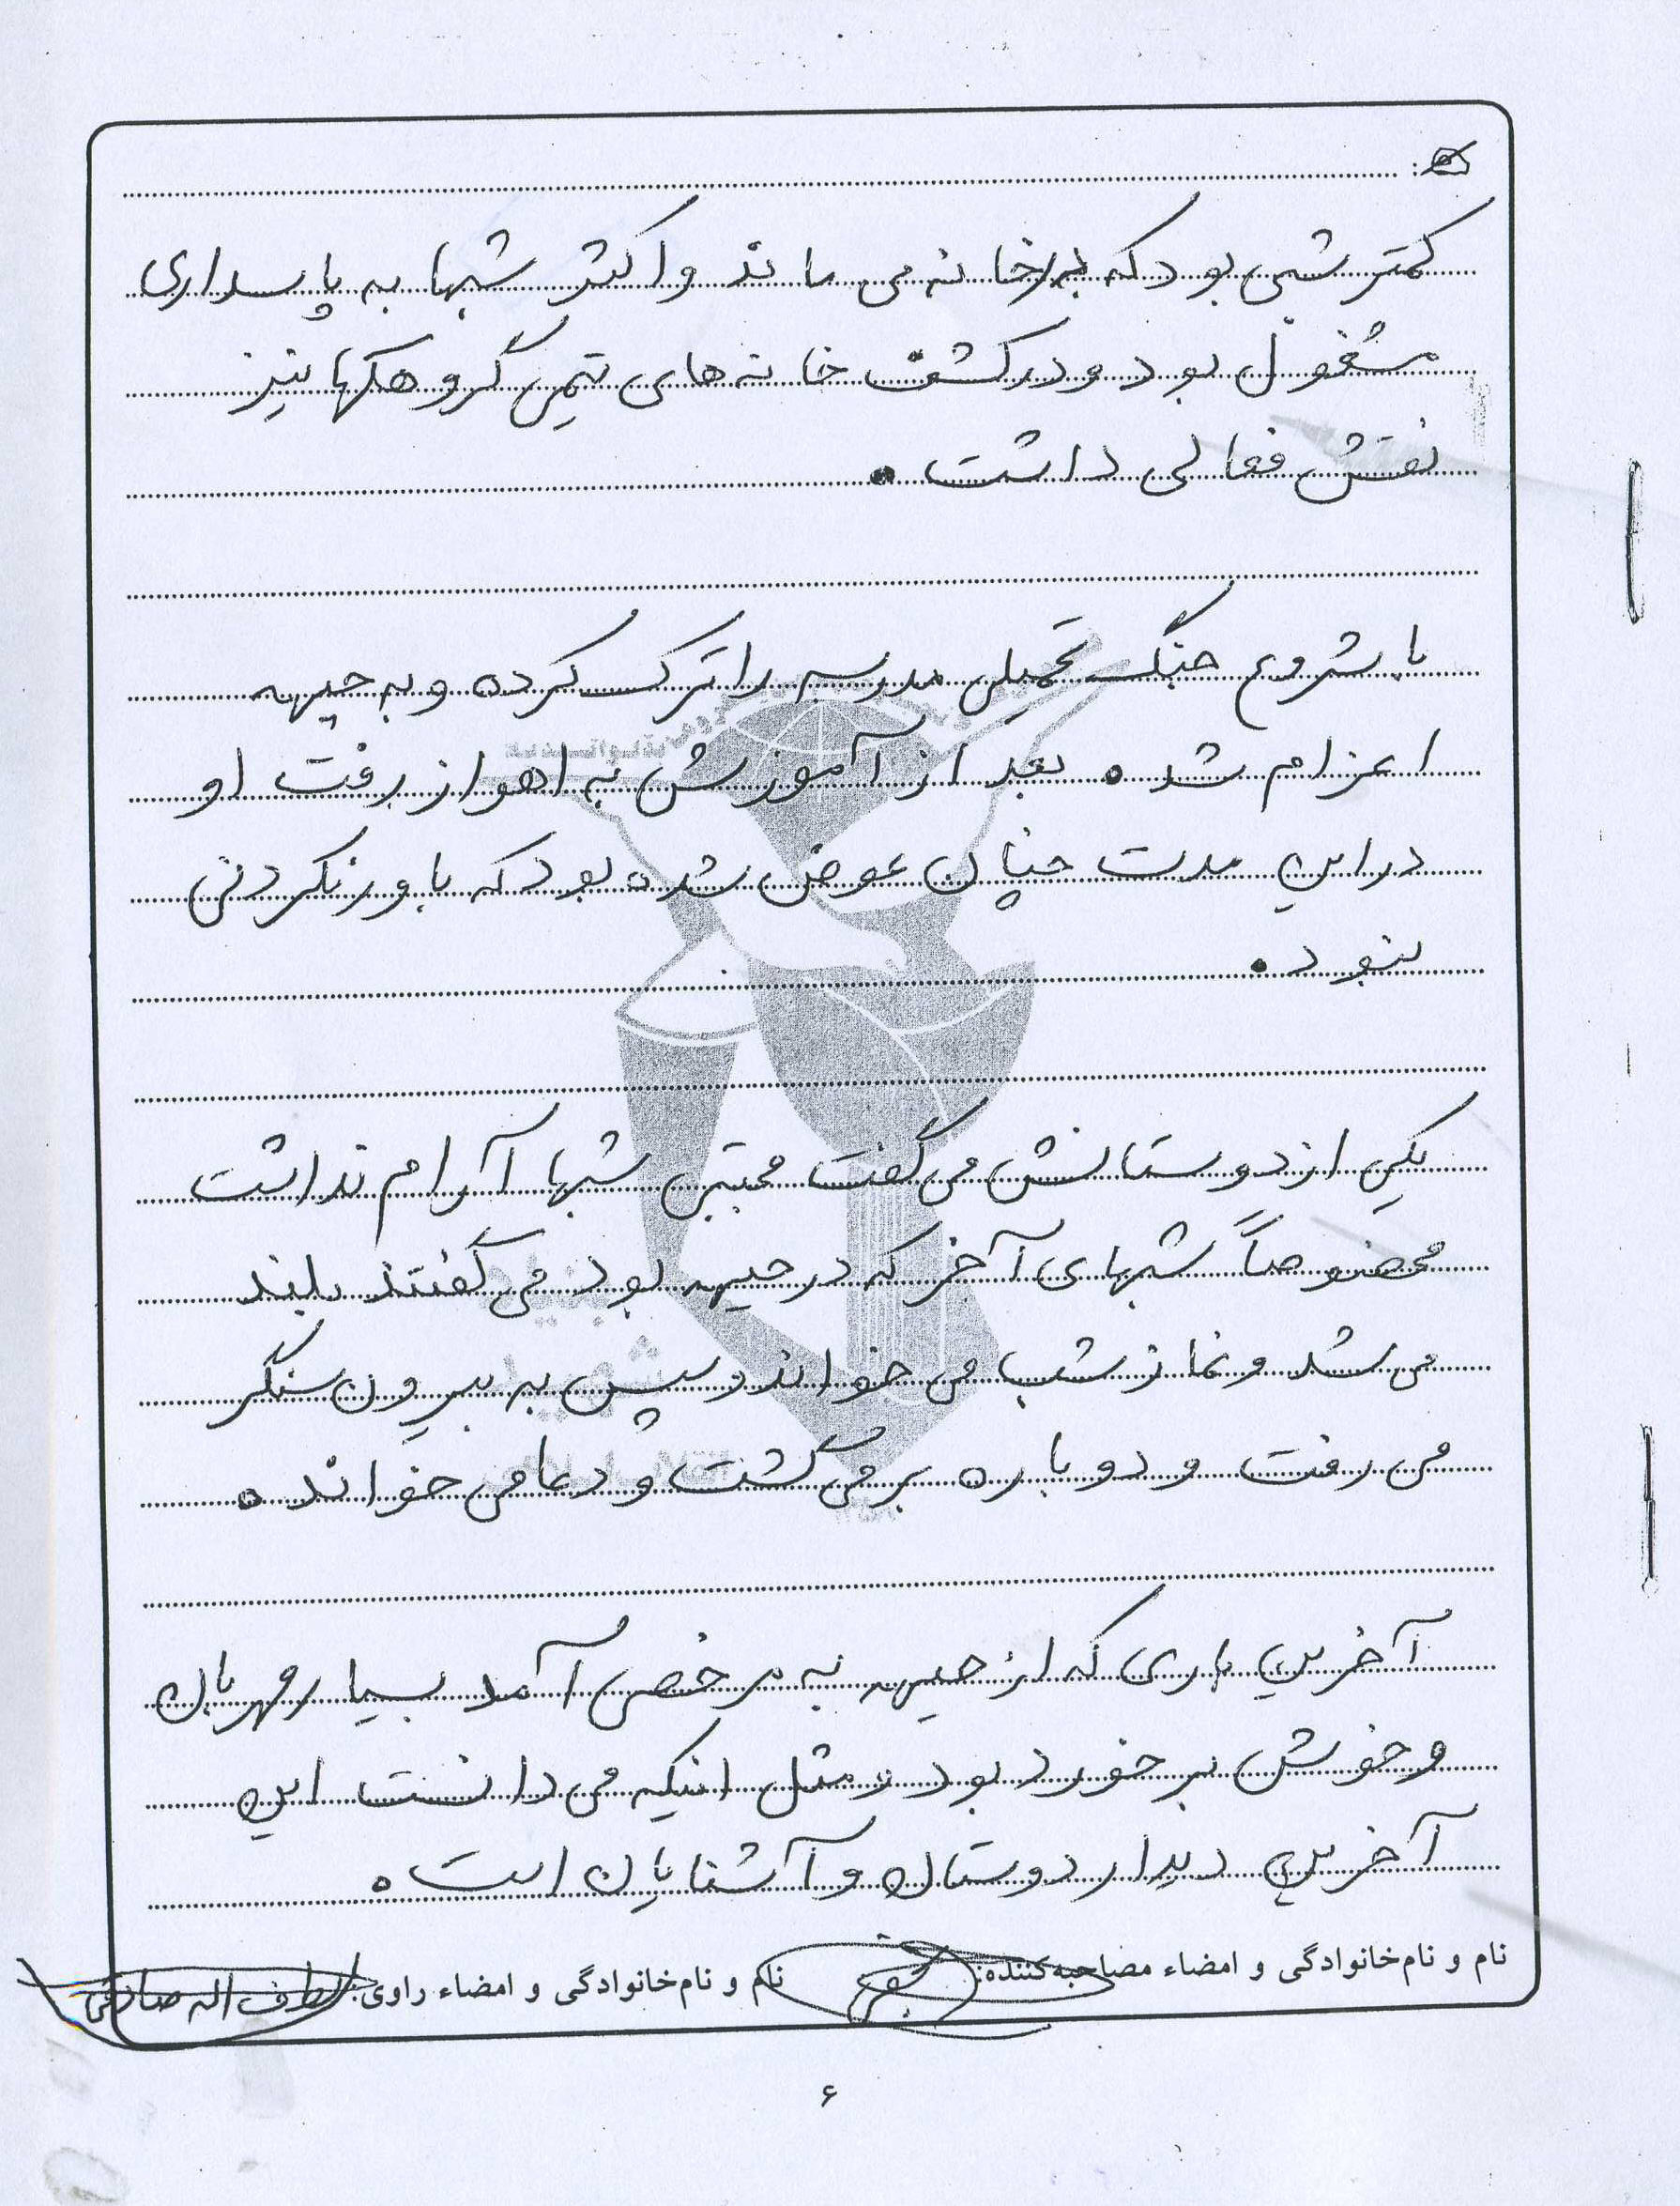 کمتر شبی بود که در خانه می ماند و اکثر شبها به پاسداری
مشغول بود و در کشف خانه های تیمی گروهکها نیز
نقش فعالی داشت .
با شروع جنگ تحمیلی مدرسه را ترک کرده و به جبهه
اعزام شد . بعد از آموزش به اهواز رفت او
در این مدت چنان عوض شده بود که باور نکردنی
نبود .
یکی از دوستانش می گفت مجتبی شبها آرام نداشت
مخصوصاً شبهای آخر که در جبهه بود می گفتند بلند
می شد و نماز شب می خواند سپس به بیرون سنگر
می رفت و دوباره بر می گشت و دعا می خواند .
آخرین باری که از جبهه به مرخصی آمد بسیار مهربان
و خوش برخورد بود مثل اینکه می دانست این
آخرین دیدار دوستان و آشنایان است .
نام و نام‌خانوادگی و امضاء مصاحبه‌کننده: نام و نام‌خانوادگی و امضاء راوی: لطف اله صادقی
۶